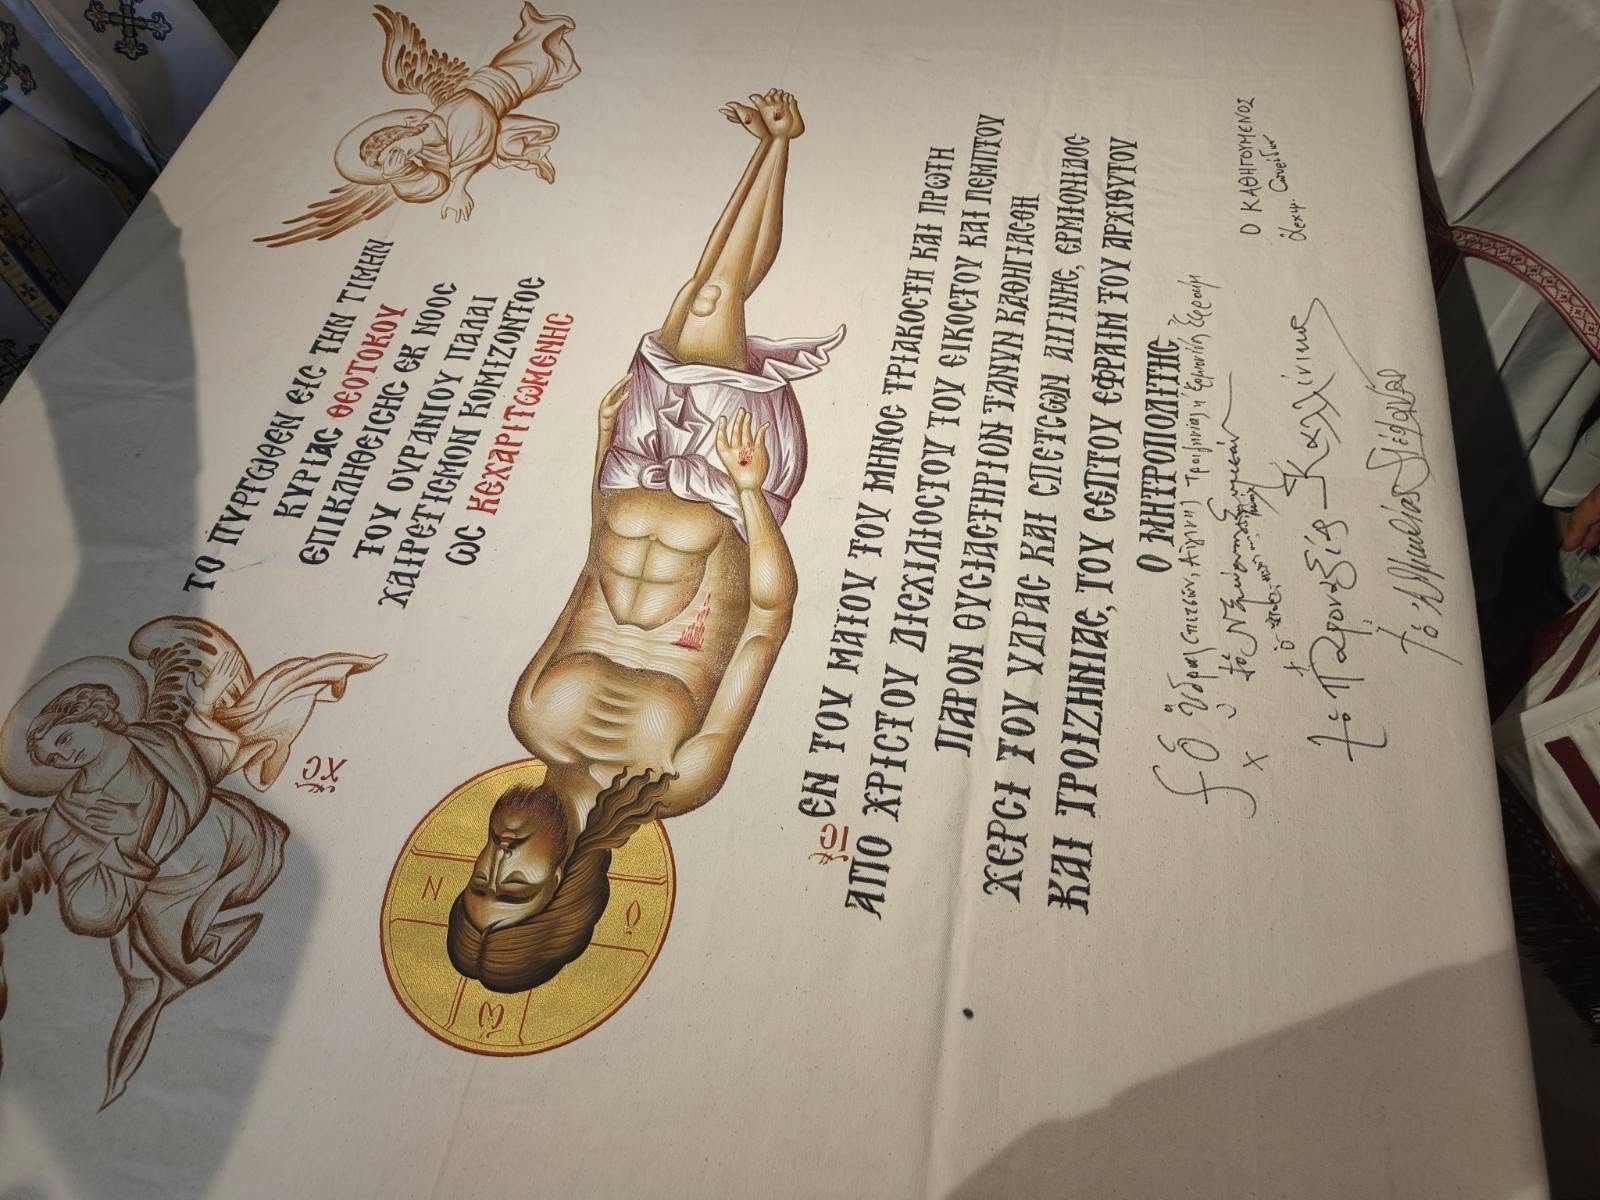 ΤΟ ΠΥΡΓΩΘΕΝ ΕΙΣ ΤΗΝ ΤΙΜΗΝ
ΚΥΡΙΑΣ ΘΕΟΤΟΚΟΥ
ΕΠΙΚΛΗΘΕΙΣΗΣ ΕΚ ΝΟΟΣ
ΤΟΥ ΟΥΡΑΝΙΟΥ ΠΑΛΑΙ
ΧΑΙΡΕΤΙΣΜΟΝ ΚΟΜΙΖΟΝΤΟΣ
ΩΣ ΚΕΧΑΡΙΤΩΜΕΝΗΣ
ΙΣ ΧΣ
Ο Ω Ν
ΕΝ ΤΟΥ ΜΑΙΟΥ ΤΟΥ ΜΗΝΟΣ ΤΡΙΑΚΟΣΤΗ ΚΑΙ ΠΡΩΤΗ
ΑΠΟ ΧΡΙΣΤΟΥ ΔΙΣΧΙΛΙΟΣΤΟΥ ΤΟΥ ΕΙΚΟΣΤΟΥ ΚΑΙ ΠΕΜΠΤΟΥ
ΠΑΡΟΝ ΘΥΣΙΑΣΤΗΡΙΟΝ ΤΑΝΥΝ ΚΑΘΗΓΙΑΣΘΗ
ΧΕΡΣΙ ΤΟΥ ΥΔΡΑΣ ΚΑΙ ΣΠΕΤΣΩΝ ΑΙΓΙΝΗΣ, ΕΡΜΙΟΝΙΔΟΣ
ΚΑΙ ΤΡΟΙΖΗΝΙΑΣ, ΤΟΥ ΣΕΠΤΟΥ ΕΦΡΑΙΜ ΤΟΥ ΑΡΧΙΘΥΤΟΥ
Ο ΜΗΤΡΟΠΟΛΙΤΗΣ
† ὁ Ὕδρας Σπετσῶν, Αἰγίνης Ἐφραίμ
† ὁ Παροναξίας Καλλίνικος
Ο ΚΑΘΗΓΟΥΜΕΝΟΣ